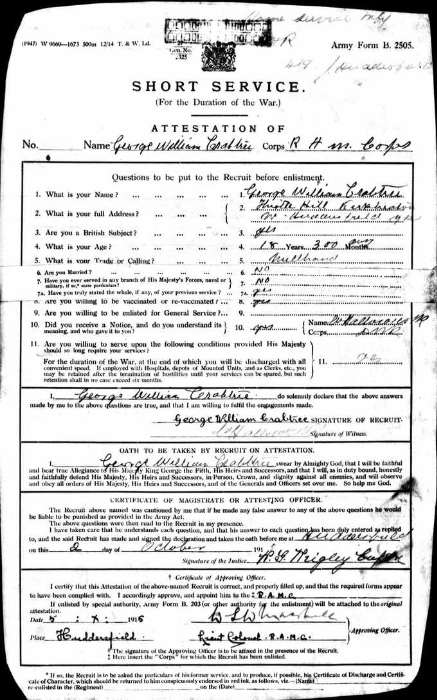 Home Service only
(1947) W 9660—1673 500m 12/14 T. & W. Ld.
Army Form B. 2505.
SHORT SERVICE.
(For the Duration of the War.)
ATTESTATION OF
No. Name George William Crabtree Corps R A M. Corps
Questions to be put to the Recruit before enlistment.
1. What is your Name? ... 1. George William Crabtree
2. What is your full Address? ... 2. Thistle Hill
Huddersfield
3. Are you a British Subject? ... 3. yes
4. What is your Age? ... 4. 18 Years 300
5. What is your Trade or Calling? ... 5. Millhand
6. Are you Married? ... 6. No
7. Have you ever served in any branch of His Majesty's Forces, naval or military, if so,* state particulars? 7. No
7A. Have you truly stated the whole, if any, of your previous service? ... 7A. yes
8. Are you willing to be vaccinated or re-vaccinated? ... 8. yes
9. Are you willing to be enlisted for General Service? ... 9.
10. Did you receive a Notice, and do you understand its meaning, and who gave it to you? 10. yes Name
Corps
11. Are you willing to serve upon the following conditions provided His Majesty should so long require your services?
For the duration of the War, at the end of which you will be discharged with all convenient speed. If employed with Hospitals, depots of Mounted Units, and as Clerks, etc., you may be retained after the termination of hostilities until your services can be spared, but such retention shall in no case exceed six months. 11. yes
I, George William Crabtree do solemnly declare that the above answers
made by me to the above questions are true, and that I am willing to fulfil the engagements made.
George William Crabtree SIGNATURE OF RECRUIT.
Signature of Witness.
OATH TO BE TAKEN BY RECRUIT ON ATTESTATION.
I, George William Crabtree swear by Almighty God, that I will be faithful
and bear true Allegiance to His Majesty King George the Fifth, His Heirs and Successors, and that I will, as in duty bound, honestly
and faithfully defend His Majesty, His Heirs and Successors, in Person, Crown, and dignity against all enemies, and will observe
and obey all orders of His Majesty, His Heirs and Successors, and of the Generals and Officers set over me. So help me God.
CERTIFICATE OF MAGISTRATE OR ATTESTING OFFICER.
The Recruit above named was cautioned by me that if he made any false answer to any of the above questions he would
be liable to be punished as provided in the Army Act.
The above questions were then read to the Recruit in my presence.
I have taken care that he understands each question, and that his answer to each question has been duly entered as replied
to, and the said Recruit has made and signed the declaration and taken the oath before me at Huddersfield
on this 2 day of October 191
Signature of the Justice
† Certificate of Approving Officer.
I certify that this Attestation of the above-named Recruit is correct, and properly filled up, and that the required forms appear
to have been complied with. I accordingly approve, and appoint him to the ‡ R.A.M.C.
If enlisted by special authority, Army Form B. 203 (or other authority for the enlistment) will be attached to the original
attestation.
Date 5 . X . 1915
Place Huddersfield Lieut Colonel R.A.M.C. Approving Officer.
† The signature of the Approving Officer is to be affixed in the presence of the Recruit.
‡ Here insert the "Corps" for which the Recruit has been enlisted.
* If so, the Recruit is to be asked the particulars of his former service, and to produce, if possible, his Certificate of Discharge and Certi-
ficate of Character, which should be returned to him conspicuously endorsed in red ink, as follows, viz.—(Name)
re-enlisted in the (Regiment) on the (Date)